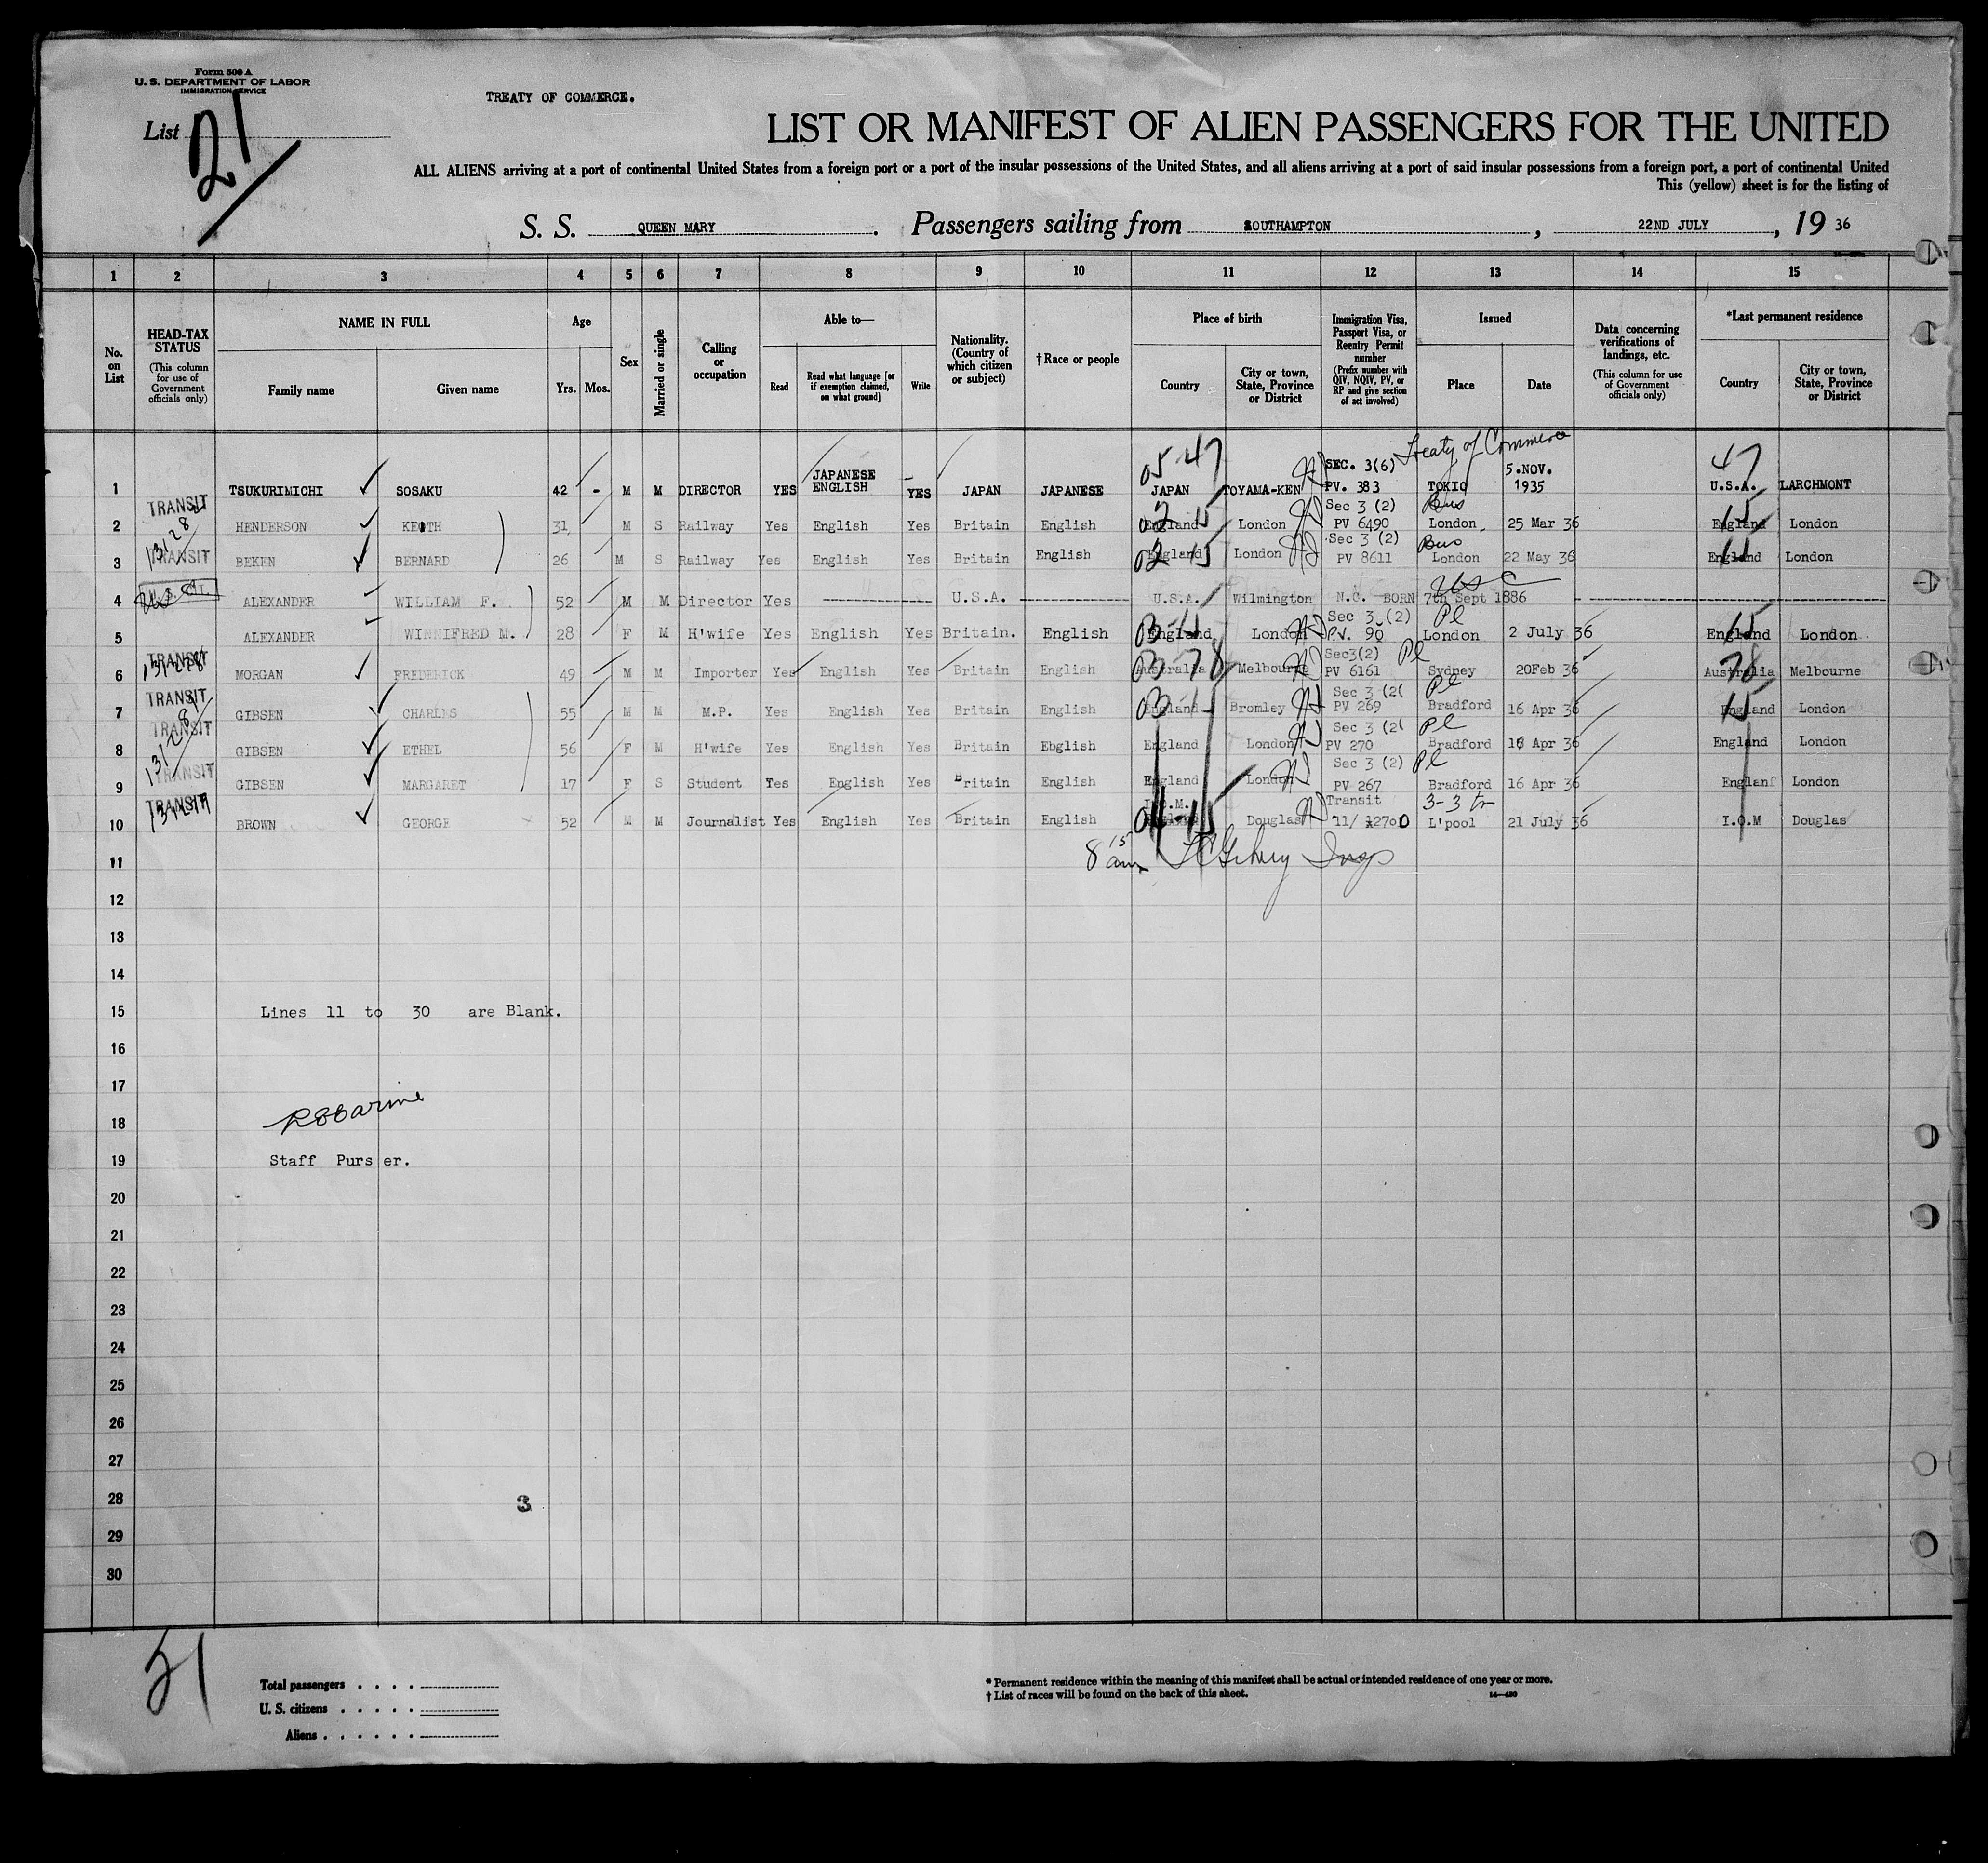 Form 500 A
U. S. DEPARTMENT OF LABOR
IMMIGRATION SERVICE
TREATY OF COMMERCE.
List 21
LIST OR MANIFEST OF ALIEN PASSENGERS FOR THE UNITED
ALL ALIENS arriving at a port of continental United States from a foreign port or a port of the insular possessions of the United States, and all aliens arriving at a port of said insular possessions from a foreign port, a port of continental United
This (yellow) sheet is for the listing of
S. S. QUEEN MARY. Passengers sailing from SOUTHAMPTON, 22ND JULY, 19 36
1 2 3 4 5 6 7 8 9 10 11 12 13 14 15
No. on List
HEAD-TAX STATUS (This column for use of Government officials only)
NAME IN FULL Family name Given name
Age Yrs. Mos.
Sex
Married or single
Calling or occupation
Able to— Read Read what language [or if exemption claimed, on what ground] Write
Nationality. (Country of which citizen or subject)
†Race or people
Place of birth Country City or town, State, Province or District
Immigration Visa, Passport Visa, or Reentry Permit number (Prefix number with QIV, NQIV, PV, or RP and give section of act involved)
Issued Place Date
Data concerning verifications of landings, etc. (This column for use of Government officials only)
*Last permanent residence Country City or town, State, Province or District
05-47 Treaty of Commerce 47
1 TSUKURIMICHI SOSAKU 42 - M M DIRECTOR YES JAPANESE ENGLISH YES JAPAN JAPANESE JAPAN TOYAMA-KEN SEC. 3(6) PV. 383 TOKIO 5.NOV. 1935 U.S.A. LARCHMONT
2 TRANSIT HENDERSON KEITH 31 M S Railway Yes English Yes Britain English England London Sec 3 (2) PV 6490 Bus London 25 Mar 36 England London
3 TRANSIT BEKEN BERNARD 26 M S Railway Yes English Yes Britain English England London Sec 3 (2) PV 8611 Bus London 22 May 36 England London
4 ALEXANDER WILLIAM F. 52 M M Director Yes U.S.A. U.S.A. Wilmington N.C. BORN 7th Sept 1886 USC
5 ALEXANDER WINNIFRED M. 28 F M H'wife Yes English Yes Britain. English England London Sec 3 (2) P.V. 90 Pl London 2 July 36 England London
6 TRANSIT MORGAN FREDERICK 49 M M Importer Yes English Yes Britain English Australia Melbourne Sec3(2) PV 6161 Pl Sydney 20Feb 36 78 Australia Melbourne
7 TRANSIT GIBSEN CHARLES 55 M M M.P. Yes English Yes Britain English England Bromley Sec 3 (2( PV 269 Pl Bradford 16 Apr 36 England London
8 TRANSIT GIBSEN ETHEL 56 F M H'wife Yes English Yes Britain Ebglish England London Sec 3 (2( PV 270 Pl Bradford 16 Apr 36 England London
9 TRANSIT GIBSEN MARGARET 17 F S Student Yes English Yes Britain English England London Sec 3 (2) PV 267 Pl Bradford 16 Apr 36 Englanf London
10 TRANSIT BROWN GEORGE 52 M M Journalist Yes English Yes Britain English I.O.M. Douglas Transit 11/ 12700 3-3 tr L'pool 21 July 36 I.O.M Douglas
11 8 15 am
12
13
14
15 Lines 11 to 30 are Blank.
16
17
18
19 Staff Purser.
20
21
22
23
24
25
26
27
28 3
29
30
21
Total passengers
U. S. citizens
Aliens
* Permanent residence within the meaning of this manifest shall be actual or intended residence of one year or more.
† List of races will be found on the back of this sheet.
14—430